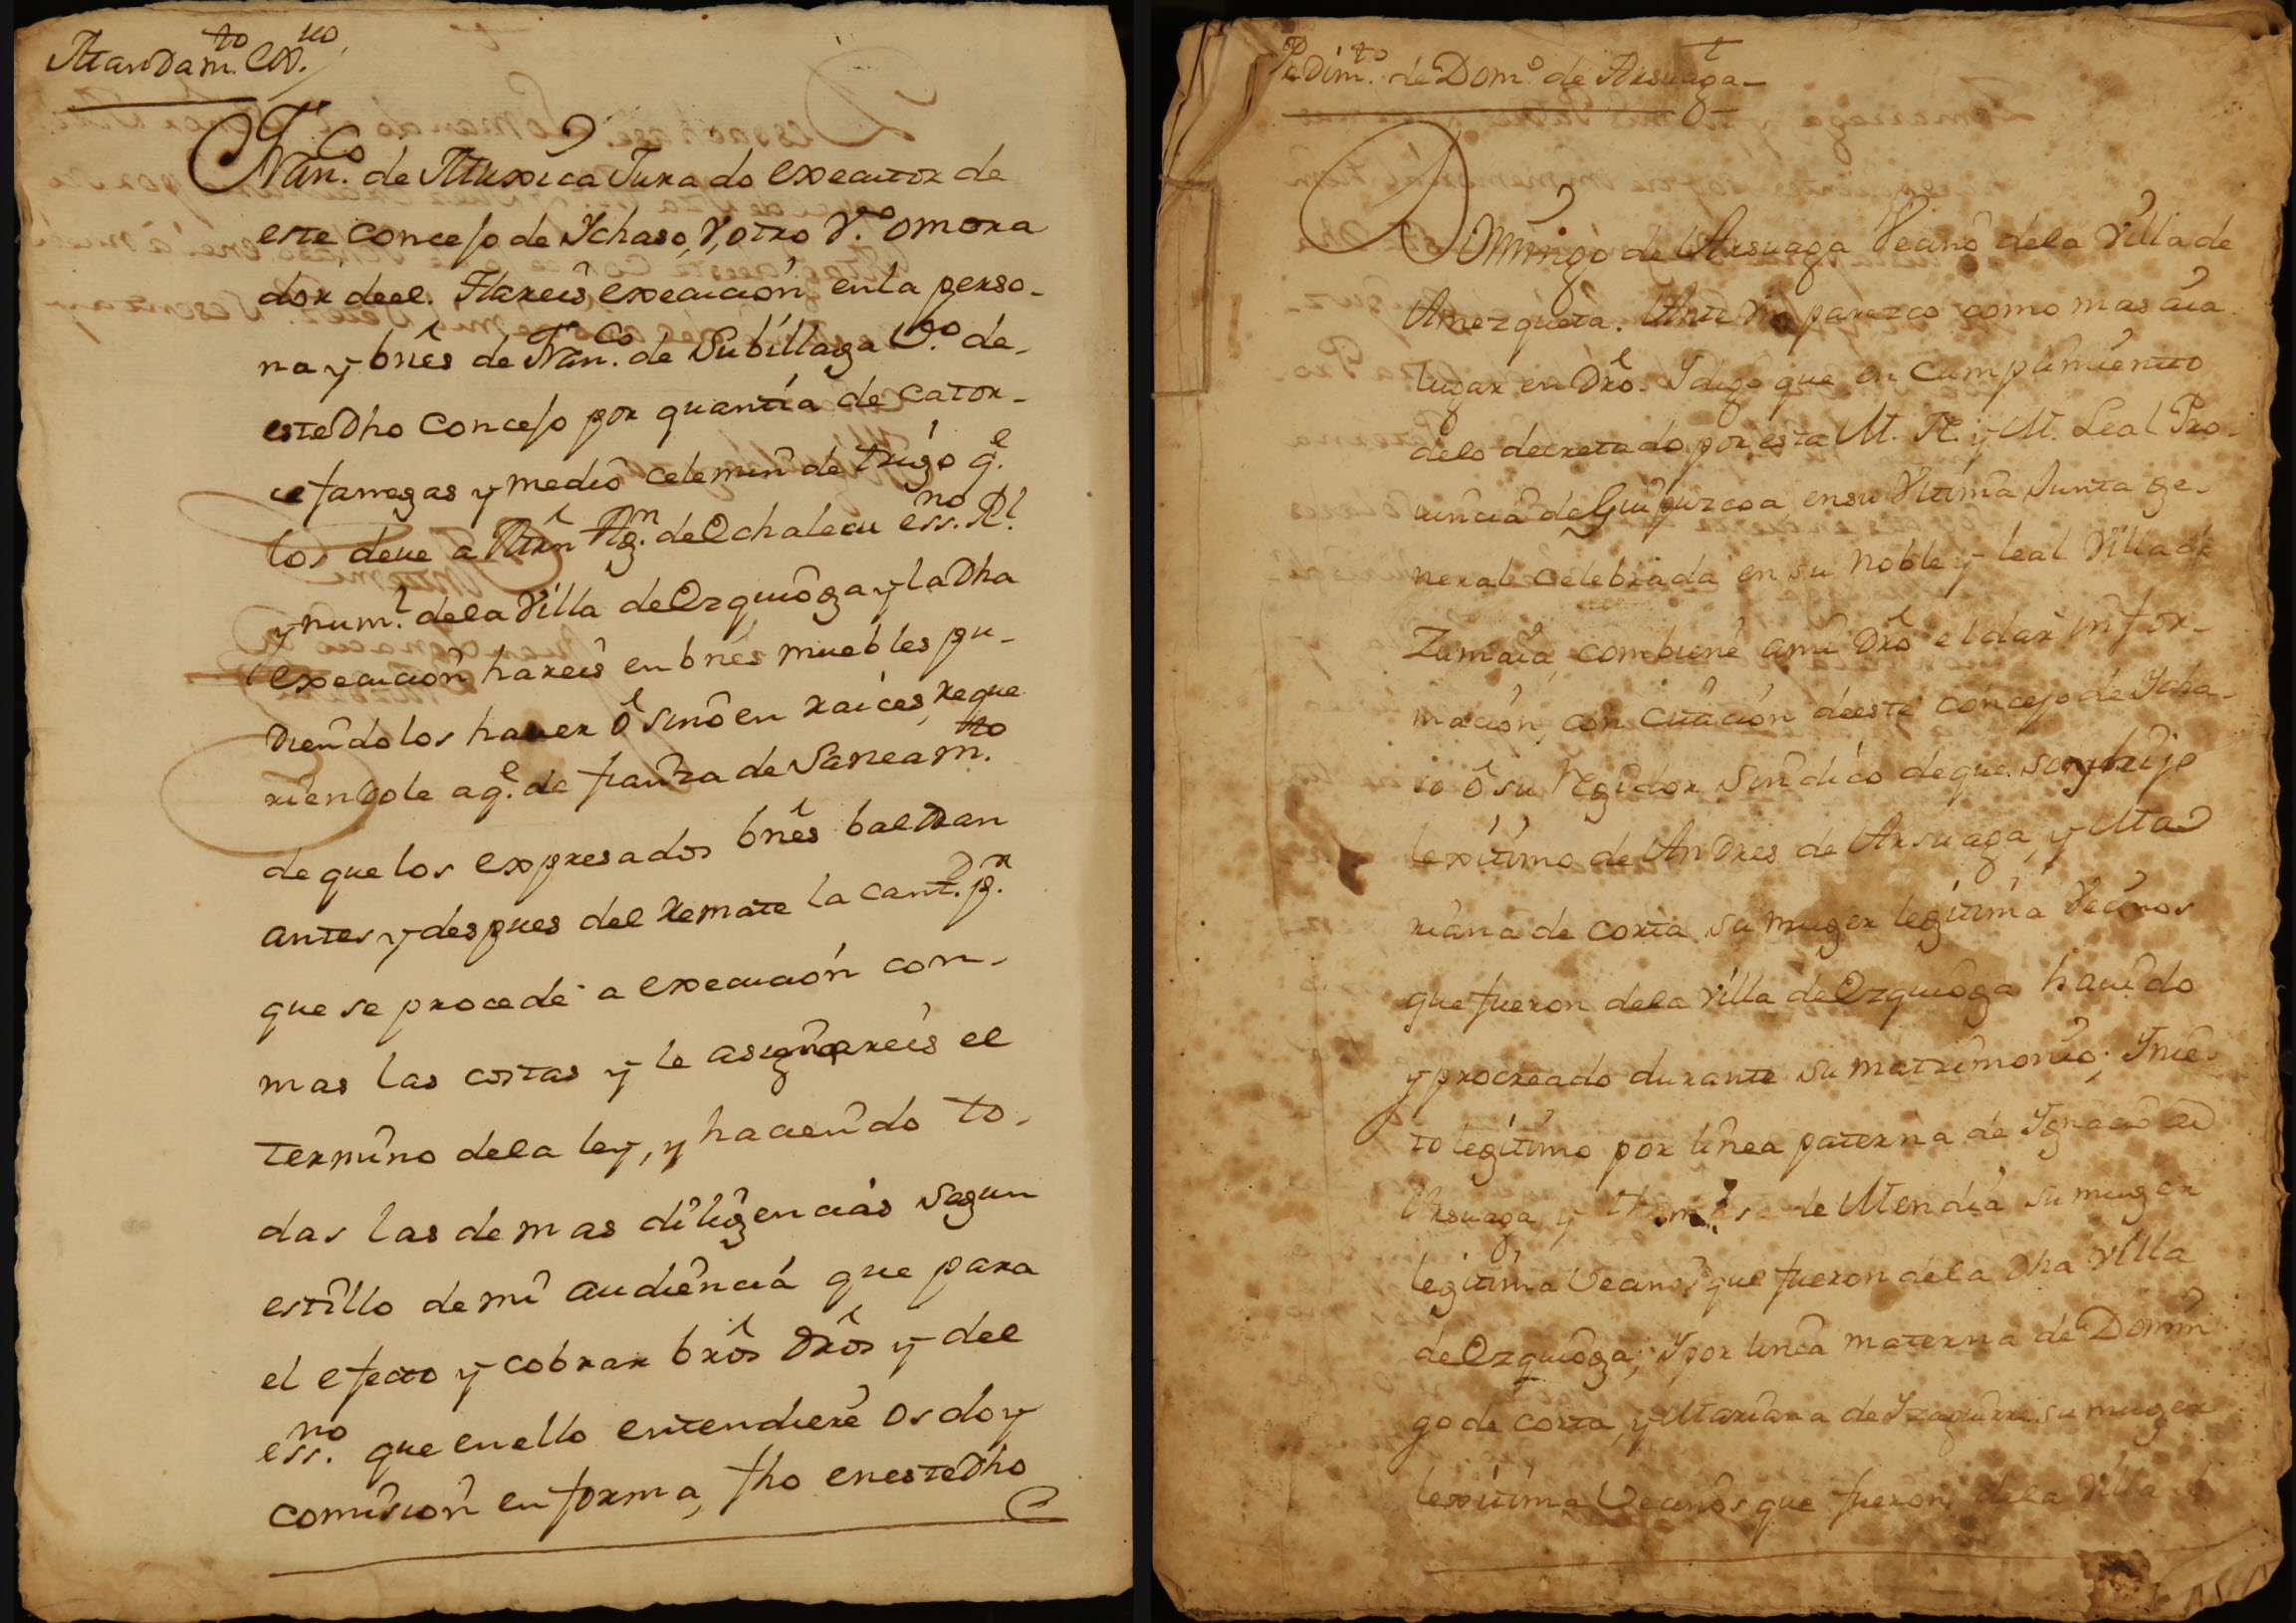 Mandam.to ex.uo
Fran.co de Muxica Jurado executor de
este concejo de Ychaso, y, otro V.o o mora
dor deel. Hareis execuíon en la perso-
na y bnês de Fran.co de Subillaga V.o de-
este Dho concejo por quantia de cator-
ce fanegas y medio celemin de trigo q.e
los deue a Mrn Ag.n de Ochalecu ess.no Rl.
y num.l dela Villa de Ezquioga y la Dha
execuíon hareis en bnês muebles pu-
diendolos hauer ô sino en raíces, reque
riendole a q.e de fianza de Saneam.to
de que los expresados bnês baldran
antes y despues del remate la cant.d p.r
que se procede a execuíon con-
mas las costas y le asignareis el
termino dela ley, y haciendo to-
das las demas diligencias segun
estíllo de mi audiencia que para
el efecto y cobrar brôs Drôs y del
ess.no que en ello entendiere os doy
comision en forma, fho eneste Dho
Pedim.to de Dom.o de Arsuaga-
Domingo de Arsuaga Vecino dela Villa de
Amezqueta. Ante Vm parezco como mas áia
lugar en Drô. Y digo que en cumplimiento
delo decretado por esta M. N. y M. Leal Pro-
uincia de Guipuzcoa en su Vltima Junta ge-
neral celebrada en su Noble y leal Villa de
Zumaia, combiene ami Drô el dar infor-
macion, con citacion deeste concejo de Ycha-
so ô su Regidor Sindico de que soy hijo
lexitimo de Andres de Arsuaga, y Ma
riana de Corta su muger legitima Vecinos
que fueron dela Villa de Ezquioga hauido
y procreado durante su matrimonio; Nie-
to legitimo por linea paterna de Ygnacio de
Arsuaga, y de Mendia su muger
legitima Vecinos que fueron dela Dha Villa
de Ezquioga; Y por linea materna de Domin
go de Corta, y Mariana de Yzaguirre su muger
lexitima Vecinos que fueron dela Villa d